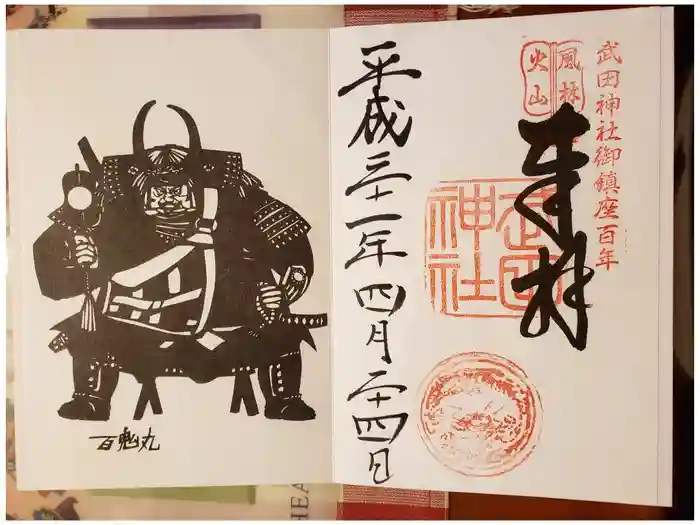 武田神社御鎮座百年
風林
火山
奉拝
武田
神社
平成三十一年四月二十四日
百鬼丸
HEA